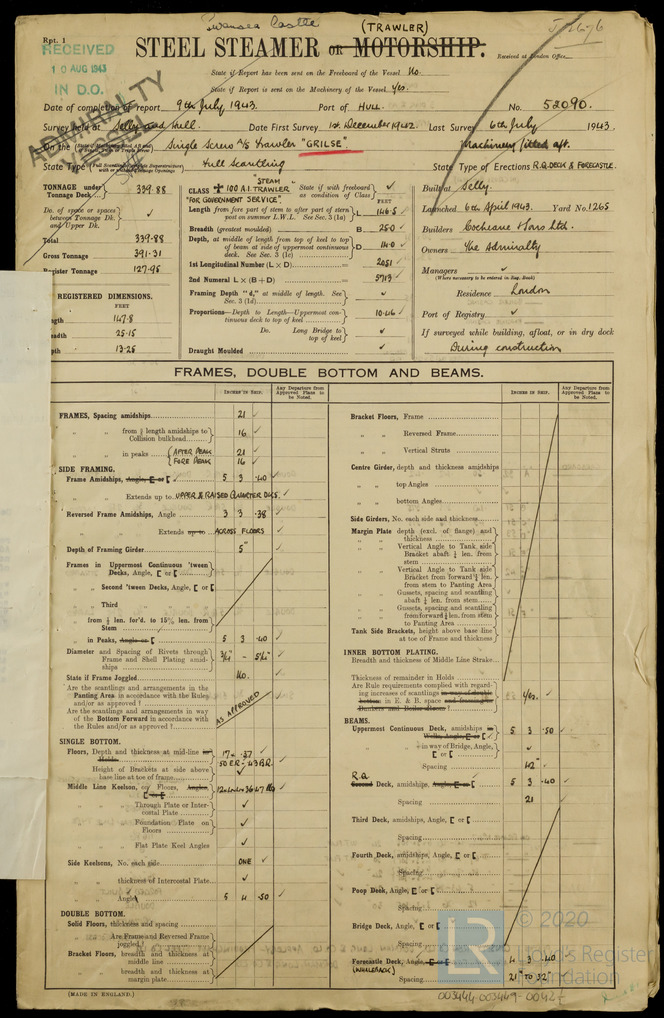 Swansea Castle
(TRAWLER)
Rpt. 1
STEEL STEAMER OR MOTORSHIP.
RECEIVED
10 AUG 1943
IN D.O.
Received at London Office
State if Report has been sent on the Freeboard of the Vessel No.
State if Report is sent on the Machinery of the Vessel Yes.
ADMIRALTY VESSEL
Date of completion of report 9th July 1943. Port of HULL. No. 52090.
Survey held at Selby and Hull. Date First Survey 1st December 1942. Last Survey 6th July 1943.
On the Single Screw Trawler "GRILSE". Machinery fitted aft.
State Type Full Scantling State Type of Erections R.Q. DECK & FORECASTLE.
TONNAGE under Tonnage Deck 339.88
Do. of space or spaces between Tonnage Dk. and Upper Dk. ✓
Total 339.88
Gross Tonnage 391.31
Register Tonnage 127.95
REGISTERED DIMENSIONS.
FEET
147.8
25.15
13.25
"STEAM
CLASS 100 A1. TRAWLER
"FOR GOVERNMENT SERVICE"
State if with freeboard as condition of Class ✓
FEET
Length from fore part of stem to after part of stern post on summer L.W.L. See Sec. 3 (1a) L 146.5
Breadth (greatest moulded) B 25.0
Depth, at middle of length from top of keel to top of beam at side of uppermost continuous deck. See Sec. 3 (1c) D 14.0
1st Longitudinal Number (L × D) = 2051
2nd Numeral L × (B + D) = 5713
Framing Depth "d," at middle of length. See Sec. 3 (1d) ✓
Proportions—Depth to Length—Uppermost continuous deck to top of keel 10.46
Do. Long Bridge to top of keel ✓
Draught Moulded ✓
Built at Selby.
Launched 6th April 1943. Yard No. 1265
Builders Cochrane & Sons Ltd.
Owners The Admiralty
Managers ✓
(Where necessary to be entered in Reg. Book)
Residence London
Port of Registry ✓
If surveyed while building, afloat, or in dry dock
During construction
FRAMES, DOUBLE BOTTOM AND BEAMS.
INCHES IN SHIP.
Any Departure from Approved Plans to be Noted.
FRAMES, Spacing amidships 21 ✓
" " from ⅕ length amidships to Collision bulkhead 16 ✓
" " in peaks AFTER PEAK 21 ✓
FORE PEAK 16 ✓
SIDE FRAMING.
Frame Amidships, Angle, E or [ 5 3 .40 ✓
" " Extends up to UPPER & RAISED QUARTER DKS. ✓
Reversed Frame Amidships, Angle 3 3 .38 ✓
" " Extends up to ACROSS FLOORS ✓
Depth of Framing Girder 5" ✓
Frames in Uppermost Continuous 'tween Decks, Angle, [ or [
" Second 'tween Decks, Angle, [ or [
" Third
" from ⅕ len. for'd. to 15% len. from Stem
" in Peaks, Angle or [ 5 3 .40 ✓
Diameter and Spacing of Rivets through Frame and Shell Plating amidships 3/4" - 5 1/4" ✓
State if Frame Joggled No. ✓
Are the scantlings and arrangements in the Panting Area in accordance with the Rules and/or as approved?
Are the scantlings and arrangements in way of the Bottom Forward in accordance with the Rules and/or as approved?
AS APPROVED
SINGLE BOTTOM.
Floors, Depth and thickness at mid-line in Holds 17" .37
.50 E.R. - .43 B.R. ✓
Height of Brackets at side above base line at toe of frame ✓
Middle Line Keelson, on Floors, Angles, [ or [
" " Through Plate or Intercostal Plate ✓
" " Foundation Plate on Floors ✓
" " Flat Plate Keel Angles ✓
Side Keelsons, No. each side ONE ✓
" " thickness of Intercostal Plate ✓
" " Angle 5 4 .50 ✓
DOUBLE BOTTOM.
Solid Floors, thickness and spacing
" " Are Frame and Reversed Frame joggled?
Bracket Floors, breadth and thickness at middle line
" " breadth and thickness at margin plate
Bracket Floors, Frame
" " Reversed Frame
" " Vertical Struts
Centre Girder, depth and thickness amidships
" " top Angles
" " bottom Angles
Side Girders, No. each side and thickness
Margin Plate depth (excl. of flange) and thickness
" " Vertical Angle to Tank side Bracket abaft ¼ len. from stem
" " Vertical Angle to Tank side Bracket from forward ¼ len. from stem to Panting Area
" " Gussets, spacing and scantling abaft ¼ len. from stem
" " Gussets, spacing and scantling from forward ¼ len. from stem to Panting Area
Tank Side Brackets, height above base line at toe of Frame and thickness
INNER BOTTOM PLATING.
Breadth and thickness of Middle Line Strake
Thickness of remainder in Holds
Are Rule requirements complied with regarding increases of scantlings in way of double bottom in E. & B. space and framing in Bunkers and Boiler Room? Yes. ✓
BEAMS.
Uppermost Continuous Deck, amidships in Wells, Angle, [ or [ 5 3 .50 ✓
" " in way of Bridge, Angle, [ or [ ✓
Spacing 42" ✓
R.Q.
Second Deck, amidships, Angle, [ or [ 5 3 .40 ✓
Spacing 21 ✓
Third Deck, amidships, Angle, [ or [
Spacing
Fourth Deck, amidships, Angle, [ or [
Spacing
Poop Deck, Angle, [ or [
Spacing
Bridge Deck, Angle, [ or [
Spacing
Forecastle Deck, Angle, [ or [ 4 3 .40
(WHALEBACK)
Spacing 21" TO 32"
(MADE IN ENGLAND.)
LR
© 2020
Lloyd's Register
Foundation
003444-003449-0042